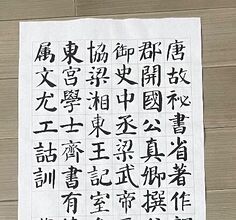 唐故祕書省著作
郡開國公真卿撰
御史中丞梁武帝
協梁湘東王記室
東宮學士齊書有
属文尤工詁訓